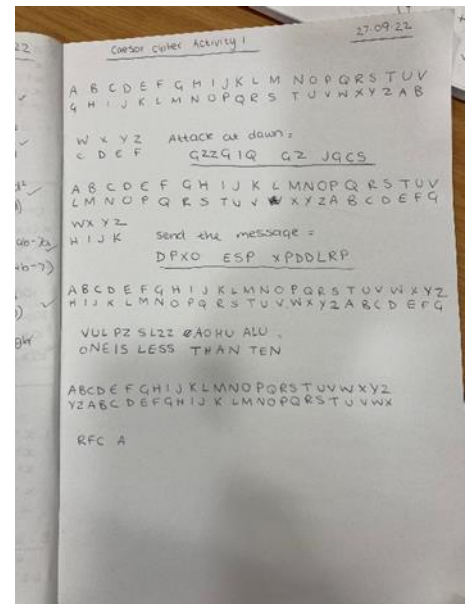 27.09.22
Caesar cipher Activity 1
A B C D E F G H I J K L M N O P Q R S T U V
G H I J K L M N O P Q R S T U V W X Y Z A B
W X Y Z Attack at dawn =
C D E F GZZGIQ GZ JGCS
A B C D E F G H I J K L M N O P Q R S T U V
L M N O P Q R S T U V W X Y Z A B C D E F G
W X Y Z
H I J K send the message =
DPXO ESP XPDDLRP
A B C D E F G H I J K L M N O P Q R S T U V W X Y Z
H I J K L M N O P Q R S T U V W X Y Z A B C D E F G
VUL PZ SLZZ AOHU ALU
ONE IS LESS THAN TEN
A B C D E F G H I J K L M N O P Q R S T U V W X Y Z
Y Z A B C D E F G H I J K L M N O P Q R S T U V W X
RFC A